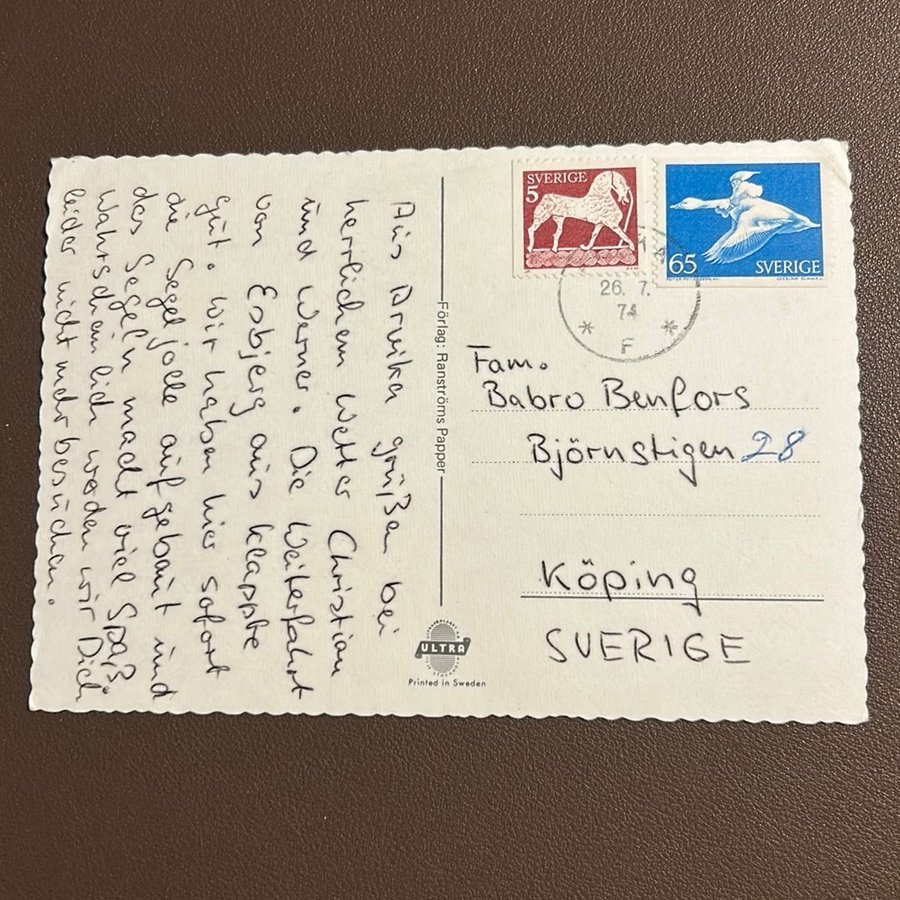 Aus Arvika grüßen bei
herrlichem Wetter Christian
und Werner. Die Weiterfahrt
von Esbjerg aus klappte
gut. Wir haben hier sofort
die Segeljolle aufgebaut und
das Segeln macht viel Spaß.
Wahrscheinlich werden wir Dich
leider nicht mehr besuchen.
Förlag: Ranströms Papper
ULTRA
Printed in Sweden
SVERIGE
5
65
SVERIGE
26. 7.
74
F
Fam.
Babro Benfors
Björnstigen 28
Köping
SVERIGE